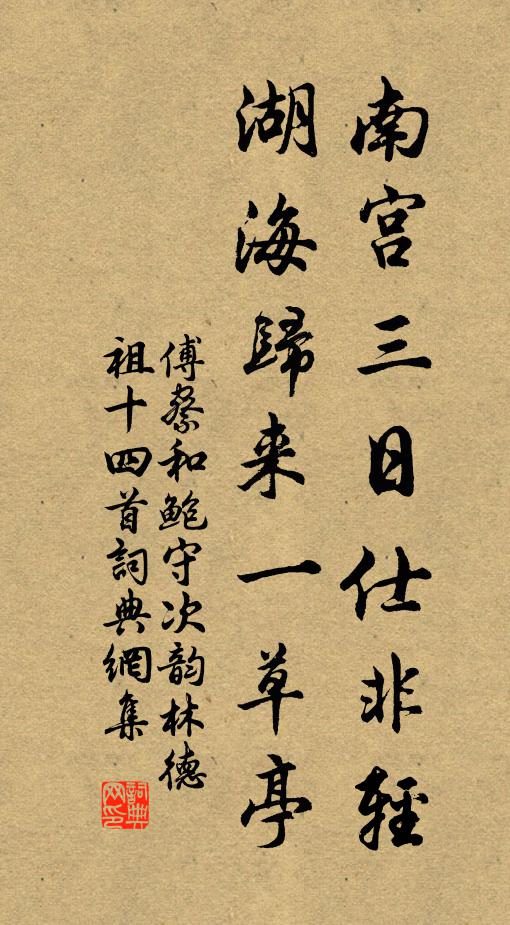 南宫三日仕非輕
湖海歸来一草亭
傅察和鮑守次韵林德
祖十四首詞典網集
詞典网印